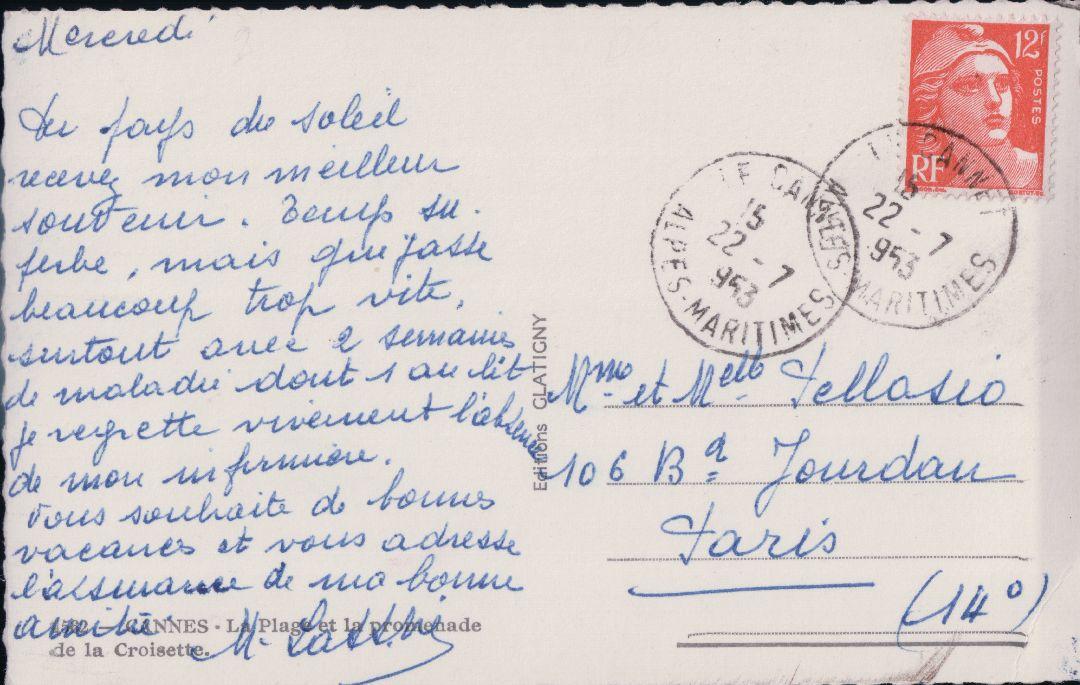 Mercredi
Du pays du soleil
recevez mon meilleur
souvenir. Temps su-
perbe, mais qui passe
beaucoup trop vite,
surtout avec 2 semaines
de maladie dont 1 au lit
je regrette vivement l'absence
de mon infirmière.
Vous souhaite de bonnes
vacances et vous adresse
l'assurance de ma bonne
amitié.
M.
CANNES - La Plage et la promenade
de la Croisette.
Editions GLATIGNY
12f
POSTES
RF
LE CANNET
15
22-7
953
ALPES-MARITIMES
LE CANNET
15
22-7
953
ALPES-MARITIMES
Mme et Melle Pellasio
106 Bd Jourdan
Paris
(14°)